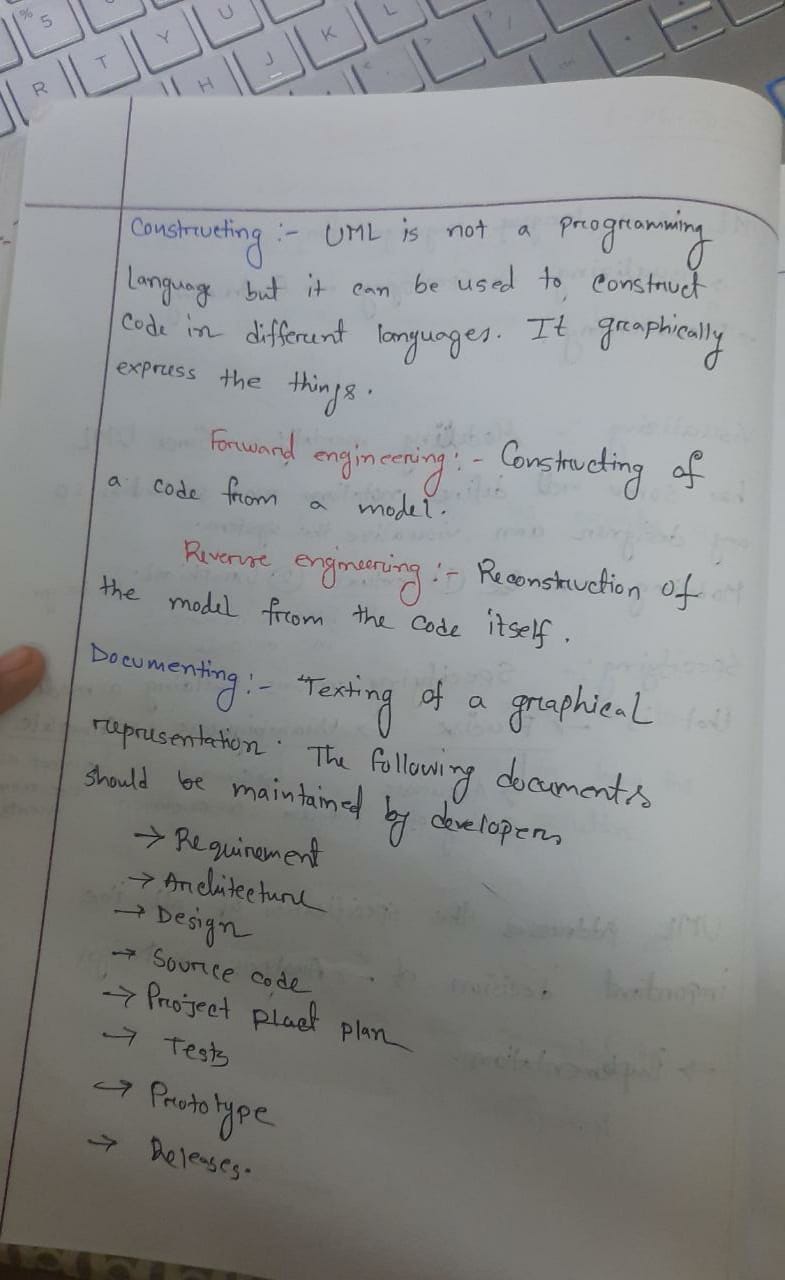 % 5
R T Y U
H J K L
Constructing :- UML is not a programming
language but it can be used to construct
Code in different languages. It graphically
express the things.
Forward engineering :- Constructing of
a code from a model.
Reverse engineering :- Reconstruction of
the model from the code itself.
Documenting :- Texting of a graphical
representation. The following documents
should be maintained by developers
→ Requirement
→ Architecture
→ Design
→ Source code
→ Project plan
→ Tests
→ Prototype
→ Releases.